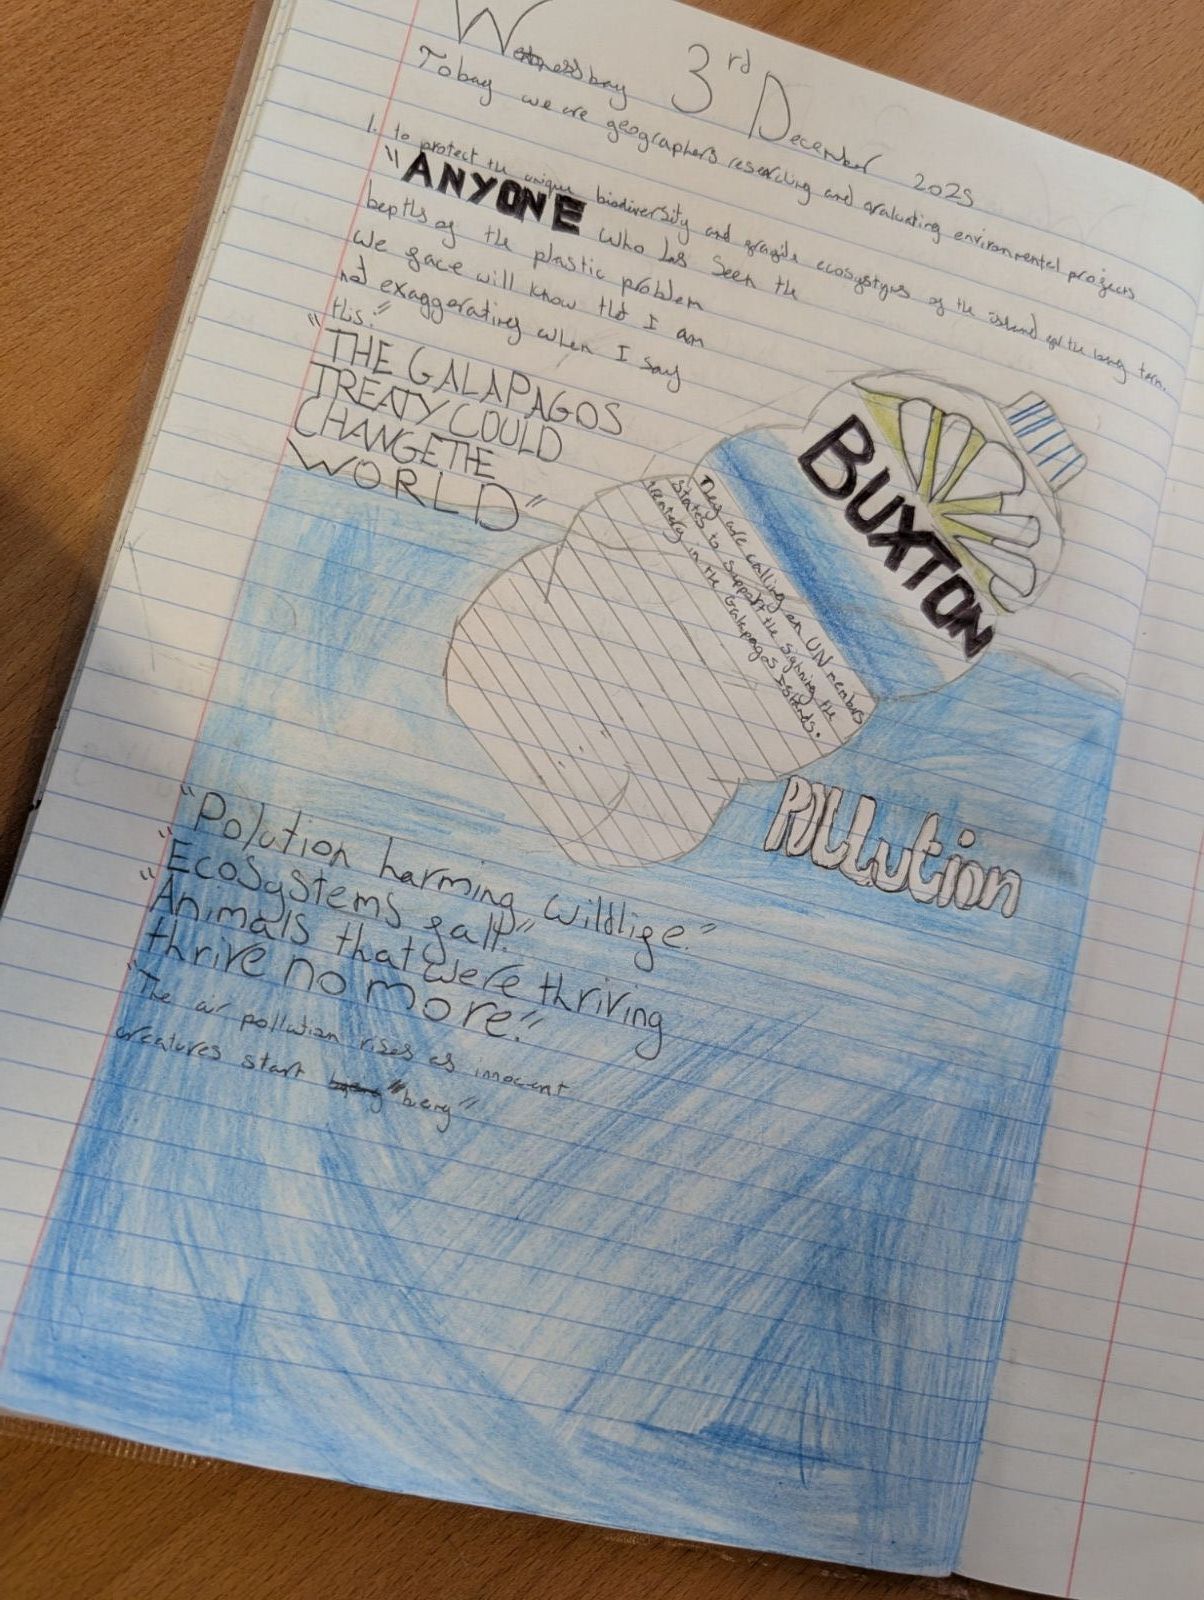 Wednessbay 3rd December 2025
Tobay we are geographers researching and evaluating environmental projects
1. to protect the unique biodiversity and fragile ecosystems of the island the long term.
"ANYONE who has seen the
bepths of the plastic problem
we face will know that I am
not exaggerating when I say
this."
"THE GALAPAGOS
TREATY COULD
CHANGE THE
WORLD"
BUXTON
They are calling on UN members
states to support the signing the
in the Galapagos Islands.
POLLution
"Polution harming wildlife."
"Ecosystems fall."
"Animals that were thriving
thrive no more."
"The air pollution rises as innocent
creatures start "